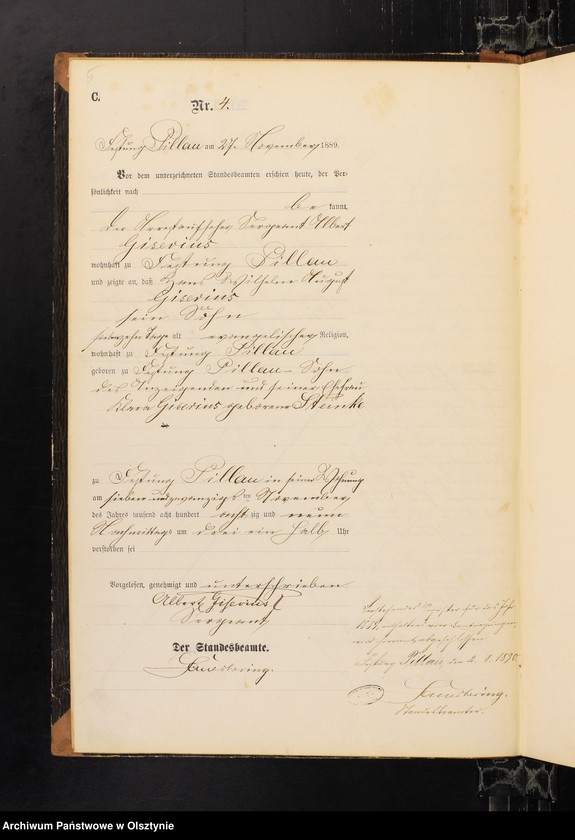 C.
Nr. 4.
Festung Pillau am 27. November 1889.
Vor dem unterzeichneten Standesbeamten erschien heute, der Per-
sönlichkeit nach
be kannt,
der Sergeant Albert
Giserius
wohnhaft zu Festung Pillau
und zeigte an, daß Hans Wilhelm August
Giserius
sein Sohn
Tage alt evangelischer Religion,
wohnhaft zu Festung Pillau
geboren zu Festung Pillau Sohn
des Anzeigenden und seiner Ehefrau
Klara Giserius geborene Steinke
zu Festung Pillau in seiner Wohnung
am sieben und zwanzigsten November
des Jahres tausend acht hundert acht zig und neun
Nachmittags um drei ein halb Uhr
verstorben sei
Vorgelesen, genehmigt und unterschrieben
Albert Giserius
Sergeant
Der Standesbeamte.
Festung Pillau, den 2. 1. 1890.
Standesbeamter.
Archiwum Państwowe w Olsztynie